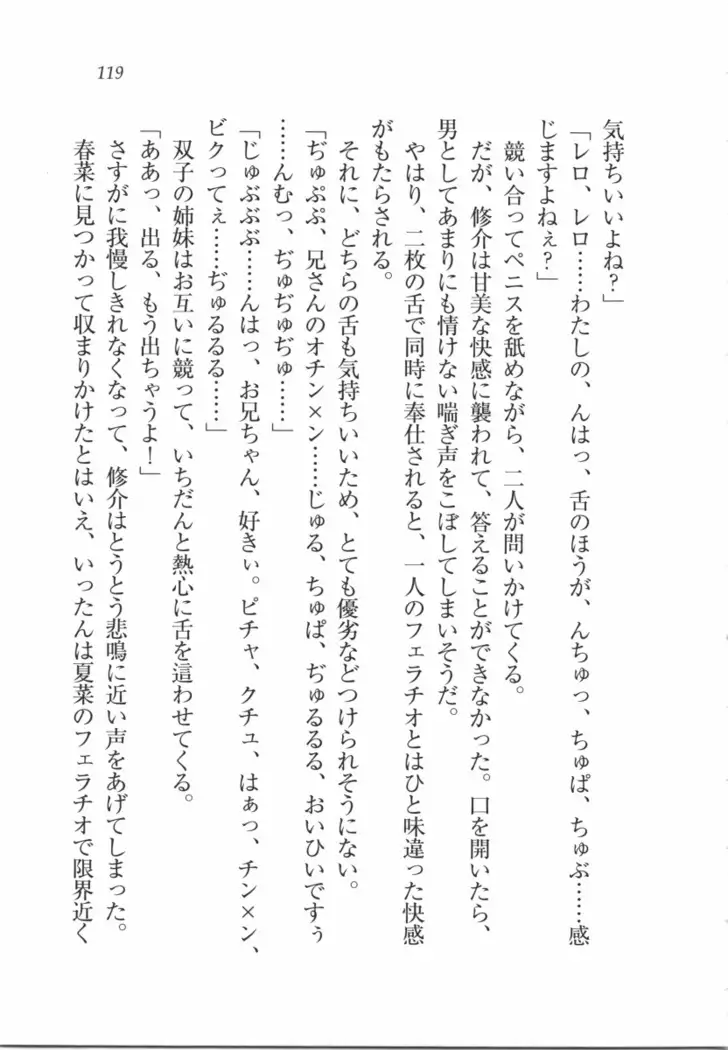 119
気持ちいいよね？」
「レロ、レロ……わたしの、んはっ、舌のほうが、んちゅっ、ちゅぱ、ちゅぶ……感
じますよねぇ？」
競い合ってペニスを舐めながら、二人が問いかけてくる。
だが、修介は甘美な快感に襲われて、答えることができなかった。口を開いたら、
男としてあまりにも情けない喘ぎ声をこぼしてしまいそうだ。
やはり、二枚の舌で同時に奉仕されると、一人のフェラチオとはひと味違った快感
がもたらされる。
それに、どちらの舌も気持ちいいため、とても優劣などつけられそうにない。
「ぢゅぷぷ、兄さんのオチン×ン……じゅる、ちゅぱ、ぢゅるるる、おいひいですぅ
……んむっ、ぢゅぢゅぢゅ……」
「じゅぶぶぶ……んはっ、お兄ちゃん、好きぃ。ピチャ、クチュ、はぁっ、チン×ン、
ビクってぇ……ぢゅるるる……」
双子の姉妹はお互いに競って、いちだんと熱心に舌を這わせてくる。
「ああっ、出る、もう出ちゃうよ！」
さすがに我慢しきれなくなって、修介はとうとう悲鳴に近い声をあげてしまった。
春菜に見つかって収まりかけたとはいえ、いったんは夏菜のフェラチオで限界近く